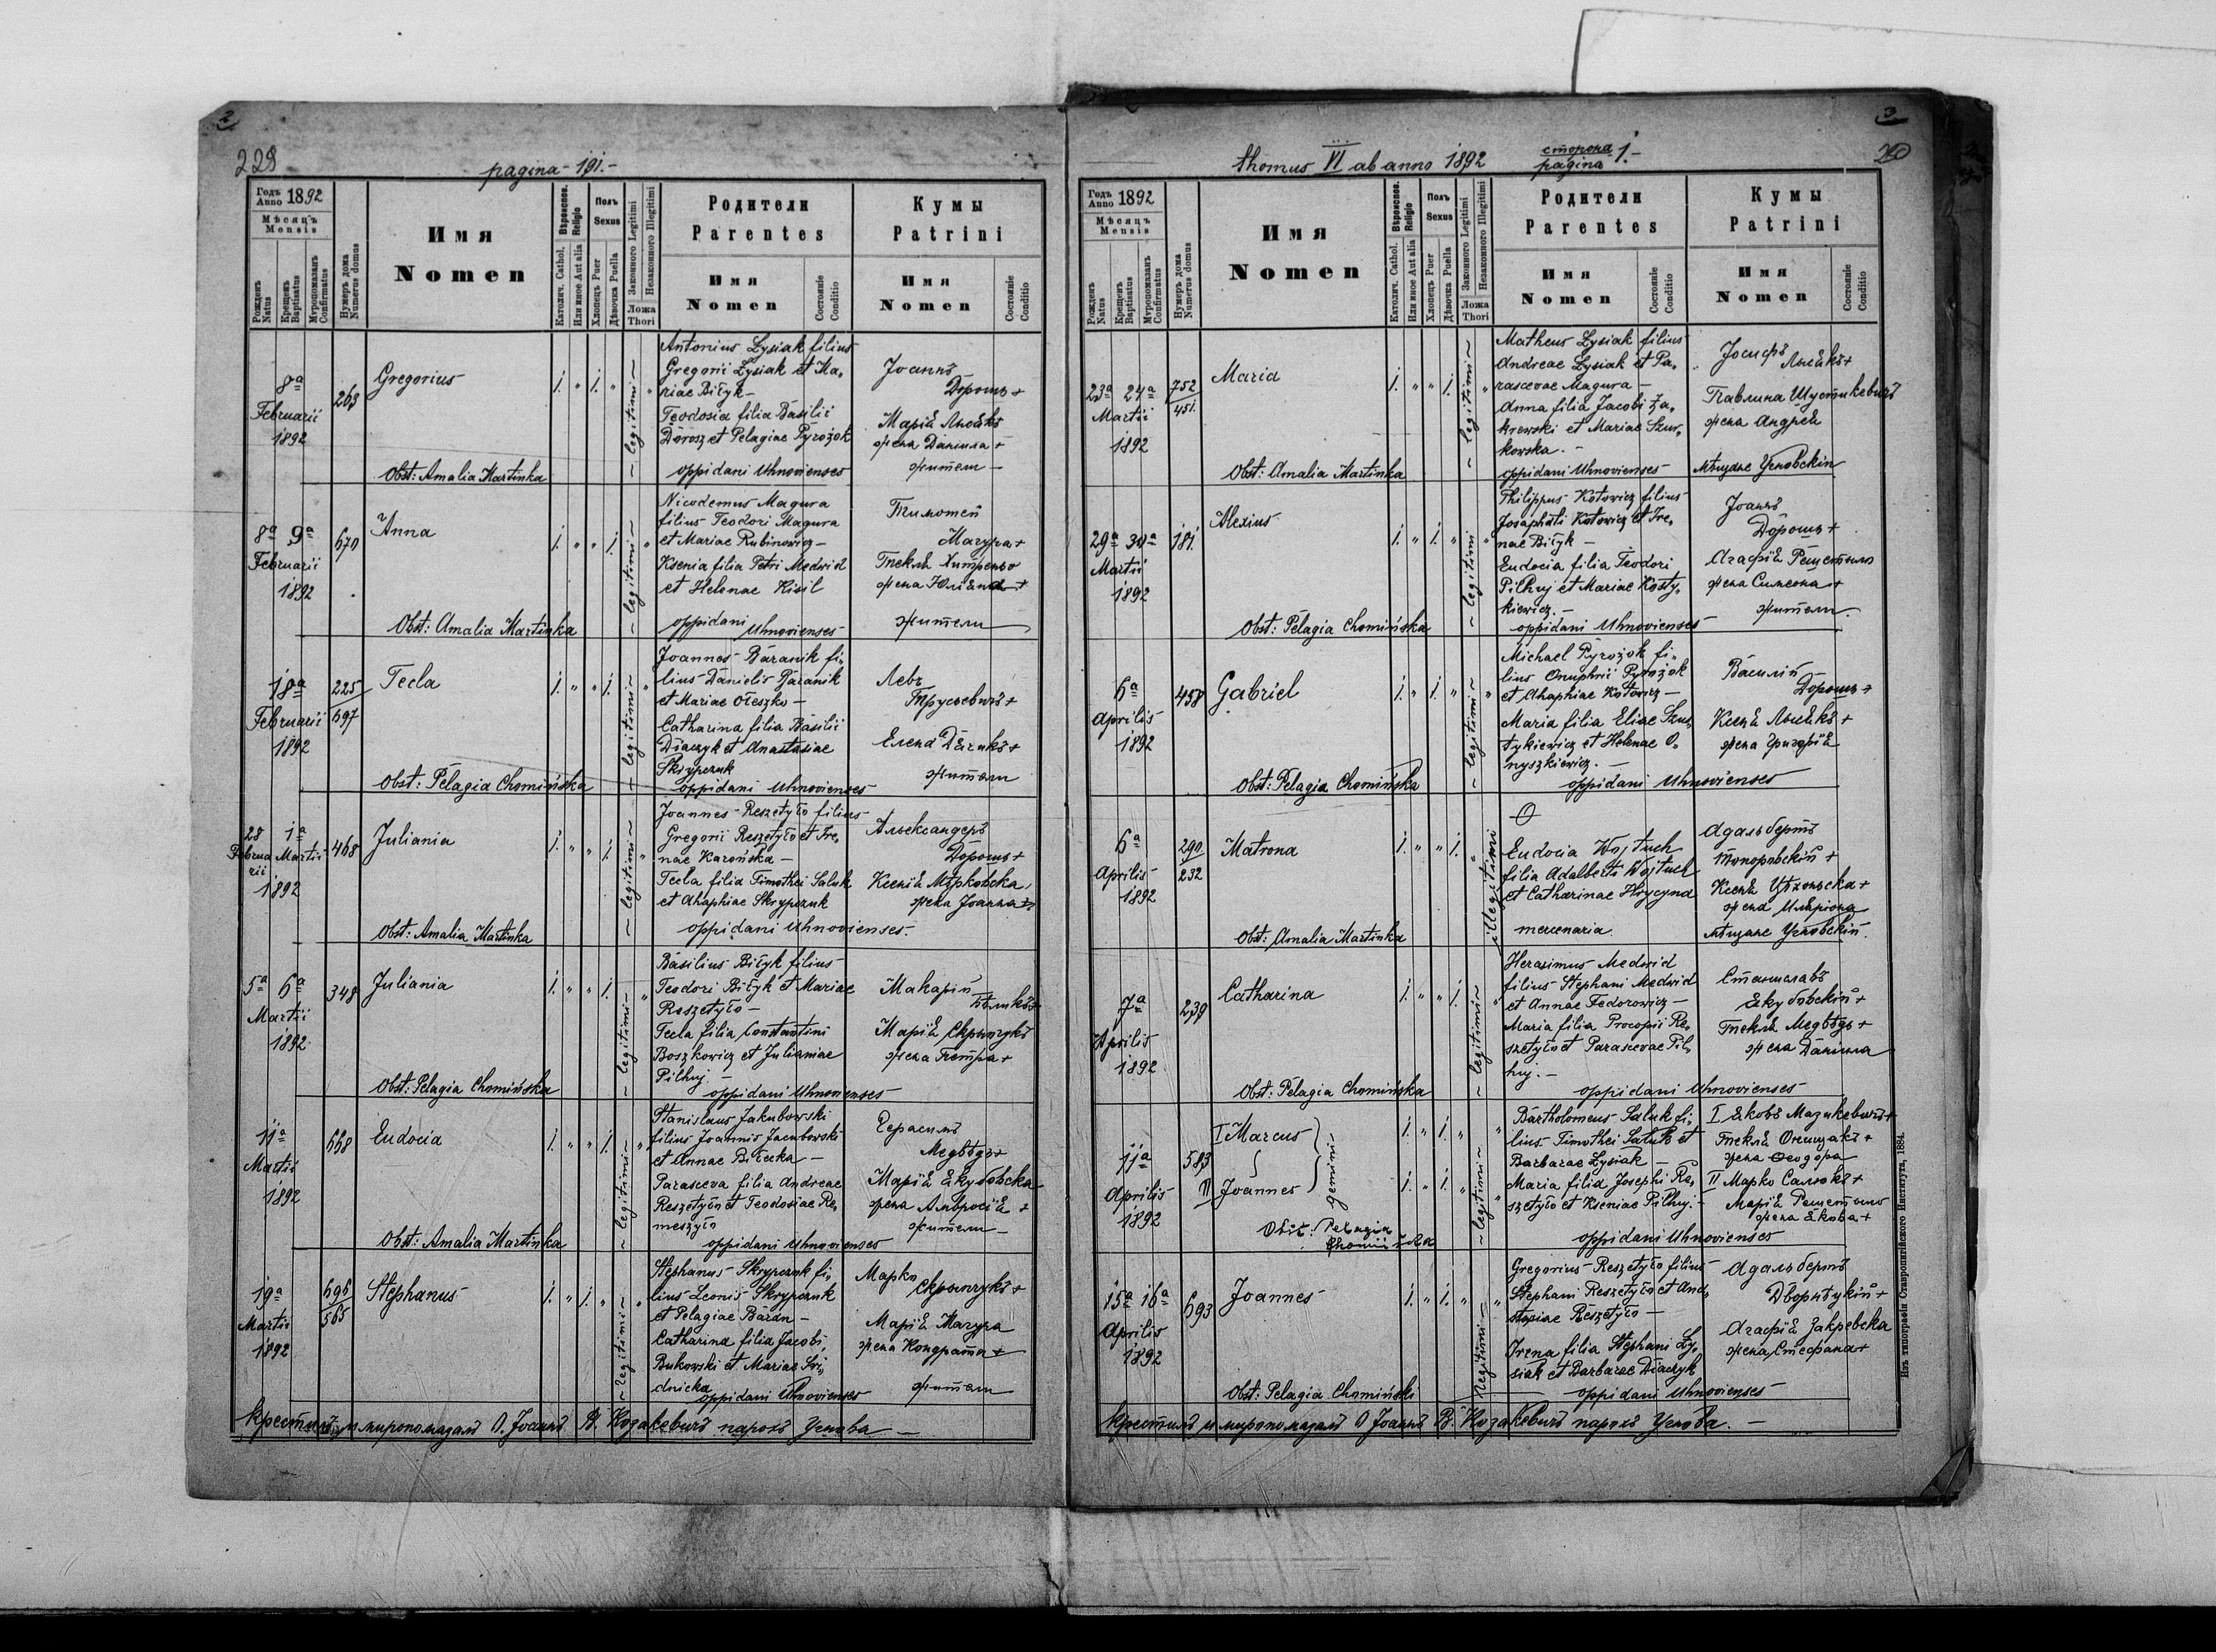 2
228
pagina - 191. -
Годъ Anno 1892
Мѣсяцъ Mensis
Рожденъ Natus
Крещенъ Baptisatus
Мѵропомазанъ Confirmatus
Нумеръ дома Numerus domus
Имя Nomen
Вѣроиспов. Religio
Католич. Cathol.
Или иное Aut alia
Полъ Sexus
Хлопецъ Puer
Дѣвочка Puella
Законного Legitimi
Незаконного Illegitimi
Ложа Thori
Родители Parentes
Имя Nomen
Состоянiе Conditio
Кумы Patrini
Имя Nomen
Состоянiе Conditio
8a Februarii 1892
263
Gregorius
1. " 1. "
~ legitimi ~
Antonius Łysiak filius
Gregorii Łysiak et Ma„
riae Biłyk -
Teodosia filia Basilii
Dorosz et Pelagiae Pyrożok
oppidani Uhnovienses
Іоаннъ
Дорошъ +
Марія Лысякъ
жена Даніила +
жители -
Obst: Amalia Martinka
8a 9a Februarii 1892
670
Anna
1. " " 1.
~ legitimi ~
Nicodemus Magura
filius Teodori Magura
et Mariae Rubinowicz -
Ksenia filia Petri Medwid
et Helenae Kisil
oppidani Uhnovienses
Тимотей
Магура +
Текля
жена Юліана +
жители
Obst: Amalia Martinka
18a Februarii 1892
225/697
Tecla
1. " " 1.
~ legitimi ~
Joannes Baranik fi„
lius Danielis Baranik
et Mariae Ołeszko -
Catharina filia Basilii
Diaczyk et Anastasiae
Skrypczuk
oppidani Uhnovienses
Левъ
Трусевичъ +
Елена Дячикъ +
жители
Obst: Pelagia Chomińska
28 Februarii 1a Martii 1892
468
Juliania
1. " " 1.
~ legitimi ~
Joannes Reszetyło filius
Gregorii Reszetyło et Ire„
nae Karońska -
Tecla filia Timothei Saluk
et Ahaphiae Skrypczuk
oppidani Uhnovienses.
Александеръ
Дорошъ +
Ксенія Мѣрковска
жена Іоанна +
Obst: Amalia Martinka
5a 6a Martii 1892
348
Juliania
1. " " 1.
~ legitimi ~
Basilius Biłyk filius
Teodori Biłyk et Mariae
Reszetyło -
Tecla filia Constantini
Boszkowicz et Julianiae
Pilhuj -
oppidani Uhnovienses
Макарій
Бѣликъ +
Марія Скрыпчукъ
жена Петра +
Obst: Pelagia Chomińska
11a Martii 1892
668
Eudocia
1. " " 1.
~ legitimi ~
Stanislaus Jakubowski
filius Joannis Jacubowski
et Annae Biłecka -
Parasceva filia Andreae
Reszetyło et Teodosiae Re„
meszyło
oppidani Uhnovienses
Герасимъ
Медвѣдъ +
Марія Якубовска
жена Амвросія +
жители
Obst: Amalia Martinka
19a Martii 1892
696/565
Stephanus
1. " 1. "
~ legitimi ~
Stephanus Skrypczuk fi„
lius Leonis Skrypczuk
et Pelagiae Baran -
Catharina filia Jacobi
Bukowski et Mariae Sri„
dnicka
oppidani Uhnovienses
Марко
Скрыпчукъ +
Марія Магура
жена Кондрата +
жители
Крестилъ и миропомазалъ О. Іоаннъ В. Козакевичъ парохъ Угнова -
3
thomus VI ab anno 1892 сторона pagina 1. -
Годъ Anno 1892
Мѣсяцъ Mensis
Рожденъ Natus
Крещенъ Baptisatus
Мѵропомазанъ Confirmatus
Нумеръ дома Numerus domus
Имя Nomen
Вѣроиспов. Religio
Католич. Cathol.
Или иное Aut alia
Полъ Sexus
Хлопецъ Puer
Дѣвочка Puella
Законного Legitimi
Незаконного Illegitimi
Ложа Thori
Родители Parentes
Имя Nomen
Состоянiе Conditio
Кумы Patrini
Имя Nomen
Состоянiе Conditio
23a 24a Martii 1892
752/451.
Maria
1. " " 1.
~ legitimi ~
Matheus Łysiak filius
Andreae Łysiak et Pa„
rascevae Magura -
Anna filia Jacobi Za„
krewski et Mariae Szur„
kowska. -
oppidani Uhnovienses
Іосифъ
Лысякъ +
Павлина Шустикевичъ
жена Андрея
мѣщане Угновскіи
Obst: Amalia Martinka
29a 30a Martii 1892
181.
Alexius
1. " 1. "
~ legitimi ~
Philippus Kotowicz filius
Josaphati Kotowicz et Ire„
nae Biłyk -
Eudocia filia Teodori
Pilhuj et Mariae Kosty„
kiewicz. -
oppidani Uhnovienses
Іоаннъ
Дорошъ +
Агафія Решетило
жена Симеона +
жители.
Obst: Pelagia Chomińska
6a Aprilis 1892
458
Gabriel
1. " 1. "
~ legitimi ~
Michael Pyrożok fi„
lius Onuphrii Pyrożok
et Ahaphiae Kotowicz -
Maria filia Eliae Szus„
tykiewicz et Helenae O„
nyszkiewicz. -
oppidani Uhnovienses
Василій
Дорошъ +
Ксеня Лысякъ +
жена Григорія
Obst: Pelagia Chomińska
6a Aprilis 1892
290/232
Matrona
1. " " 1.
illegitimi
Eudocia Wojtuch
filia Adalberti Wojtuch
et Catharinae Hrycyna
mercenaria.
Адальбертъ
Топоровскій +
Ксеня
жена Иларіона
мѣщане Угновскіи.
Obst: Amalia Martinka
7a Aprilis 1892
239
Catharina
1. " " 1.
~ legitimi ~
Herasimus Medwid
filius Stephani Medwid
et Annae Fedorowicz -
Maria filia Procopii Re„
szetyło et Parascevae Pil„
huj. -
oppidani Uhnovienses
Станиславъ
Якубовскій +
Текля Медвѣдъ +
жена Даніила
Obst: Pelagia Chomińska
11a Aprilis 1892
583
I Marcus
II Joannes
gemini
1. " 1. "
1. " 1. "
~ legitimi ~
Bartholomeus Saluk fi„
lius Timothei Saluk et
Barbarae Łysiak -
Maria filia Josephi Re„
szetyło et Kseniae Pilhuj. -
oppidani Uhnovienses
I Яковъ Мазикевичъ +
Текля
жена Ѳеодора
II Марко Салюкъ +
Марія Решетило
жена Якова +
Obst: Pelagia Chomińska
15a 16a Aprilis 1892
693
Joannes
1. " 1. "
legitimi ~
Gregorius Reszetyło filius
Stephani Reszetyło et Ana„
stasiae Reszetyło -
Irena filia Stephani Ły„
siak et Barbarae Diaczyk
oppidani Uhnovienses
Адальбертъ
Агафія Закревска
жена Стефана +
Obst: Pelagia Chomiński
Крестилъ и миропомазалъ О Іоаннъ В. Козакевичъ парохъ Угнова. -
Изъ типографіи Ставропигійского Института, 1884.